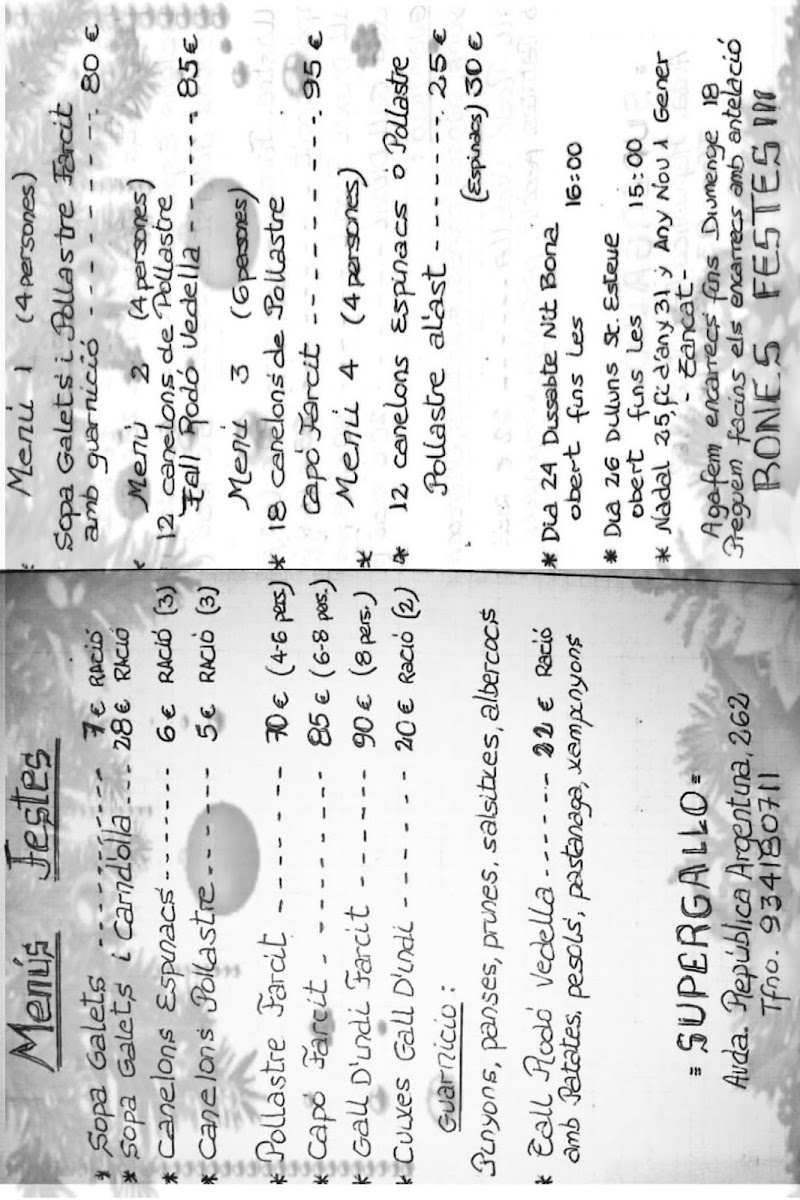 Menús Festes
* Sopa Galets --------- 7€ RACIÓ
* Sopa Galets i Carndolla --- 28€ RACIÓ
* Canelons Espinacs ------- 6€ RACIÓ (3)
* Canelons Pollastre ------ 5€ RACIÓ (3)
* Pollastre Farcit ------- 70€ (4-6 pers)
* Capó Farcit --------- 85€ (6-8 pers.)
* Gall D'indi Farcit ------- 90€ (8 pers.)
* Cuixes Gall D'indi ------ 20€ Ració (2)
Guarnicio:
Pinyons, panses, prunes, salsitxes, albercocs
* Tall Rodó Vedella ------ 22€ Ració
amb Patates, pesols, pastanaga, xampinyons
= SUPERGALLO =
Avda. República Argentina, 262
Tfno. 934180711
Menú 1 (4 persones)
Sopa Galets i Pollastre Farcit
amb guarnició --------- 80€
Menú 2 (4 persones)
12 canelons de Pollastre
Tall Rodó Vedella ------- 85€
Menú 3 (6 persones)
* 18 canelons de Pollastre
Capó Farcit ------- 95€
* Menú 4 (4 persones)
* 12 canelons Espinacs o Pollastre
Pollastre a l'ast ------- 25€
(Espinacs) 30€
* Dia 24 Dussabte Nit Bona
obert fins les 16:00
* Dia 26 Dulluns St. Esteve
obert fins les 15:00
* Nadal 25, fi d'any 31 y Any Nou 1 Gener
- Tancat -
Agafem encarrecs fins Diumenge 18
Preguem facins els encarrecs amb antelació
BONES FESTES!!!